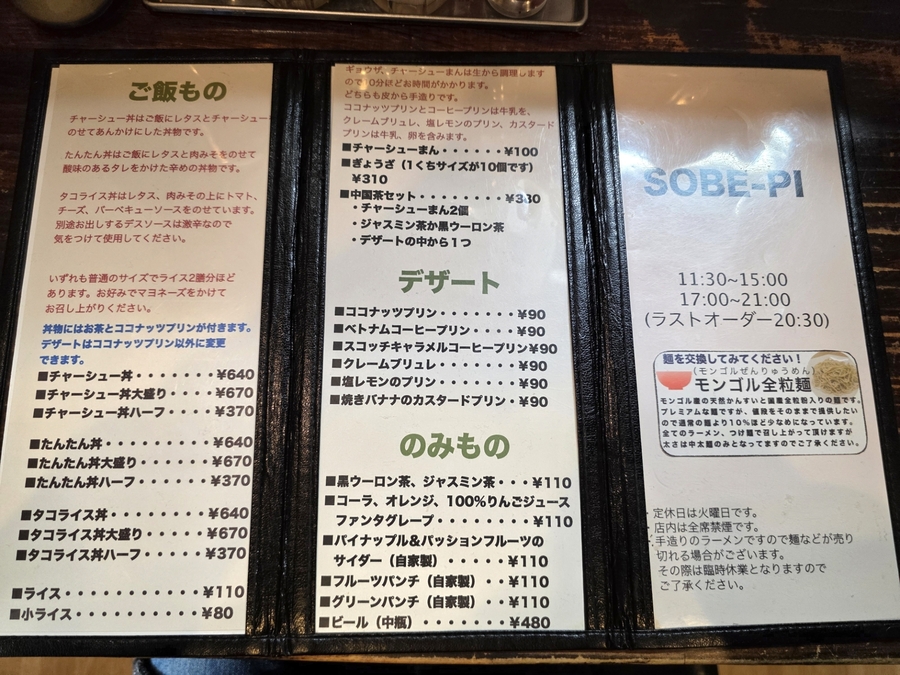 ご飯もの
チャーシュー丼はご飯にレタスとチャーシュー
のせてあんかけにした丼物です。
たんたん丼はご飯にレタスと肉みそをのせて
酸味のあるタレをかけた辛めの丼物です。
タコライス丼はレタス、肉みその上にトマト、
チーズ、バーベキューソースをのせています。
別途お出しするデスソースは激辛なので
気をつけて使用してください。
いずれも普通のサイズでライス2膳分ほど
あります。お好みでマヨネーズをかけて
お召し上がりください。
丼物にはお茶とココナッツプリンが付きます。
デザートはココナッツプリン以外に変更
できます。
■チャーシュー丼・・・・・・・¥640
■チャーシュー丼大盛り・・・・¥670
■チャーシュー丼ハーフ・・・・¥370
■たんたん丼・・・・・・・・・¥640
■たんたん丼大盛り・・・・・・¥670
■たんたん丼ハーフ・・・・・・¥370
■タコライス丼・・・・・・・・¥640
■タコライス丼大盛り・・・・・¥670
■タコライス丼ハーフ・・・・・¥370
■ライス・・・・・・・・・・・¥110
■小ライス・・・・・・・・・・¥80
ギョウザ、チャーシューまんは生から調理します
ので10分ほどお時間がかかります。
どちらも皮から手造りです。
ココナッツプリンとコーヒープリンは牛乳を、
クレームブリュレ、塩レモンのプリン、カスタード
プリンは牛乳、卵を含みます。
■チャーシューまん・・・・・・・¥100
■ぎょうざ（1くちサイズが10個です）
¥310
■中国茶セット・・・・・・・・¥330
・チャーシューまん2個
・ジャスミン茶か黒ウーロン茶
・デザートの中から１つ
デザート
■ココナッツプリン・・・・・・・¥90
■ベトナムコーヒープリン・・・・¥90
■スコッチキャラメルコーヒープリン¥90
■クレームブリュレ・・・・・・・¥90
■塩レモンのプリン・・・・・・・¥90
■焼きバナナのカスタードプリン・¥90
のみもの
■黒ウーロン茶、ジャスミン茶・・・¥110
■コーラ、オレンジ、100%りんごジュース
ファンタグレープ・・・・・・・¥110
■パイナップル&パッションフルーツの
サイダー（自家製）・・・・・¥110
■フルーツパンチ（自家製）・・¥110
■グリーンパンチ（自家製）・・¥110
■ビール（中瓶）・・・・・・・¥480
SOBE-PI
11:30~15:00
17:00~21:00
(ラストオーダー20:30)
麺を交換してみてください！
(モンゴルぜんりゅうめん)
モンゴル全粒麺
モンゴル産の天然かんすいと国産全粒粉入りの麺です。
プレミアムな麺ですが、値段をそのままで提供したい
ので通常の麺より10％ほど少なめになっています。
全てのラーメン、つけ麺で召し上がって頂けますが
太さは中太麺のみとなってますのでご了承ください。
・定休日は火曜日です。
・店内は全席禁煙です。
・手造りのラーメンですので麺などが売り
切れる場合がございます。
その際は臨時休業となりますので
ご了承ください。